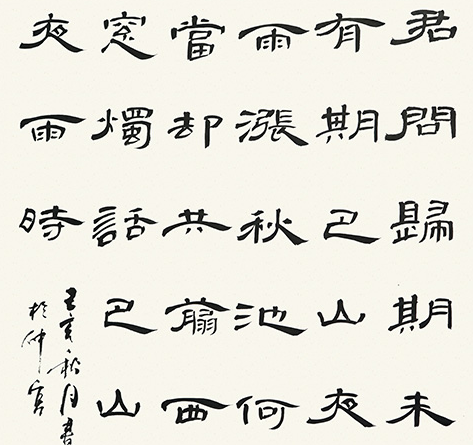 君問歸期未
有期巴山夜
雨漲秋池何
當却共翦西
窓燭話巴山
夜雨時
己亥秋月書
於仲